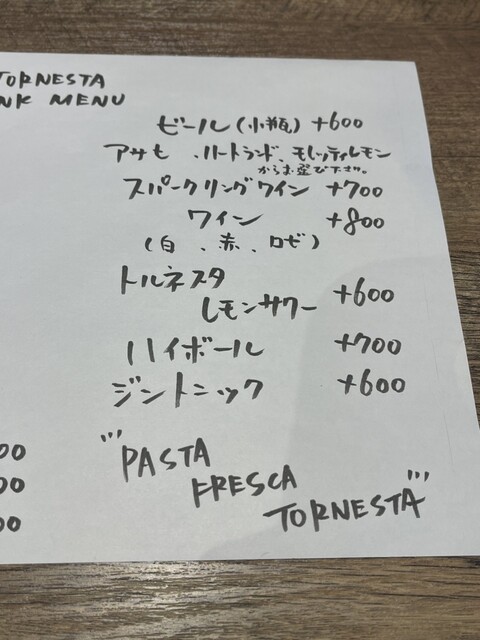 TORNESTA
NK MENU
ビール(小瓶) +600
アサヒ 、ハートランド、モレッティレモン
からお選び下さい。
スパークリングワイン +700
ワイン +800
(白、赤、ロゼ)
トルネスタ
レモンサワー +600
ハイボール +700
ジントニック +600
00
00
00
"PASTA
FRESCA
TORNESTA"